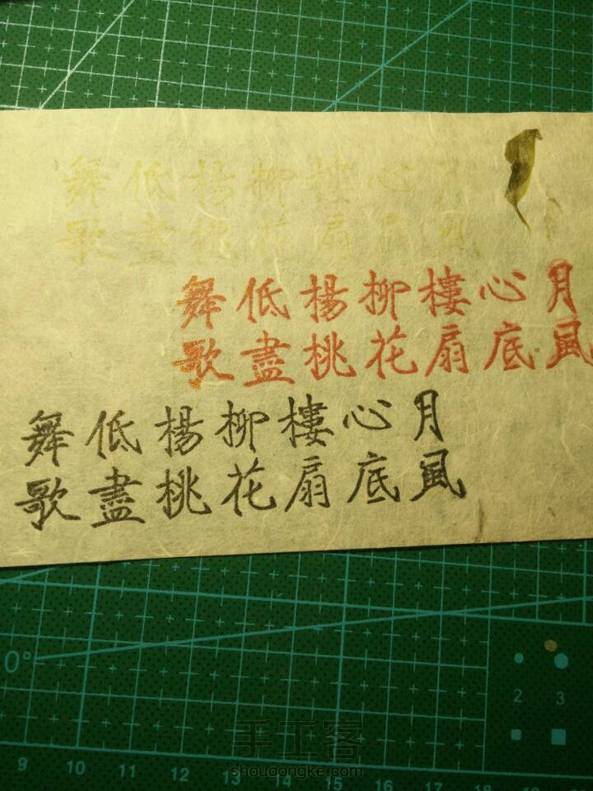 舞低楊柳樓心月
歌盡桃花扇底風
舞低楊柳樓心月
歌盡桃花扇底風
舞低楊柳樓心月
歌盡桃花扇底風
0°
2 3
9 10 11 12 13 14 15 16 17 18 19
手工客
shougongke.com